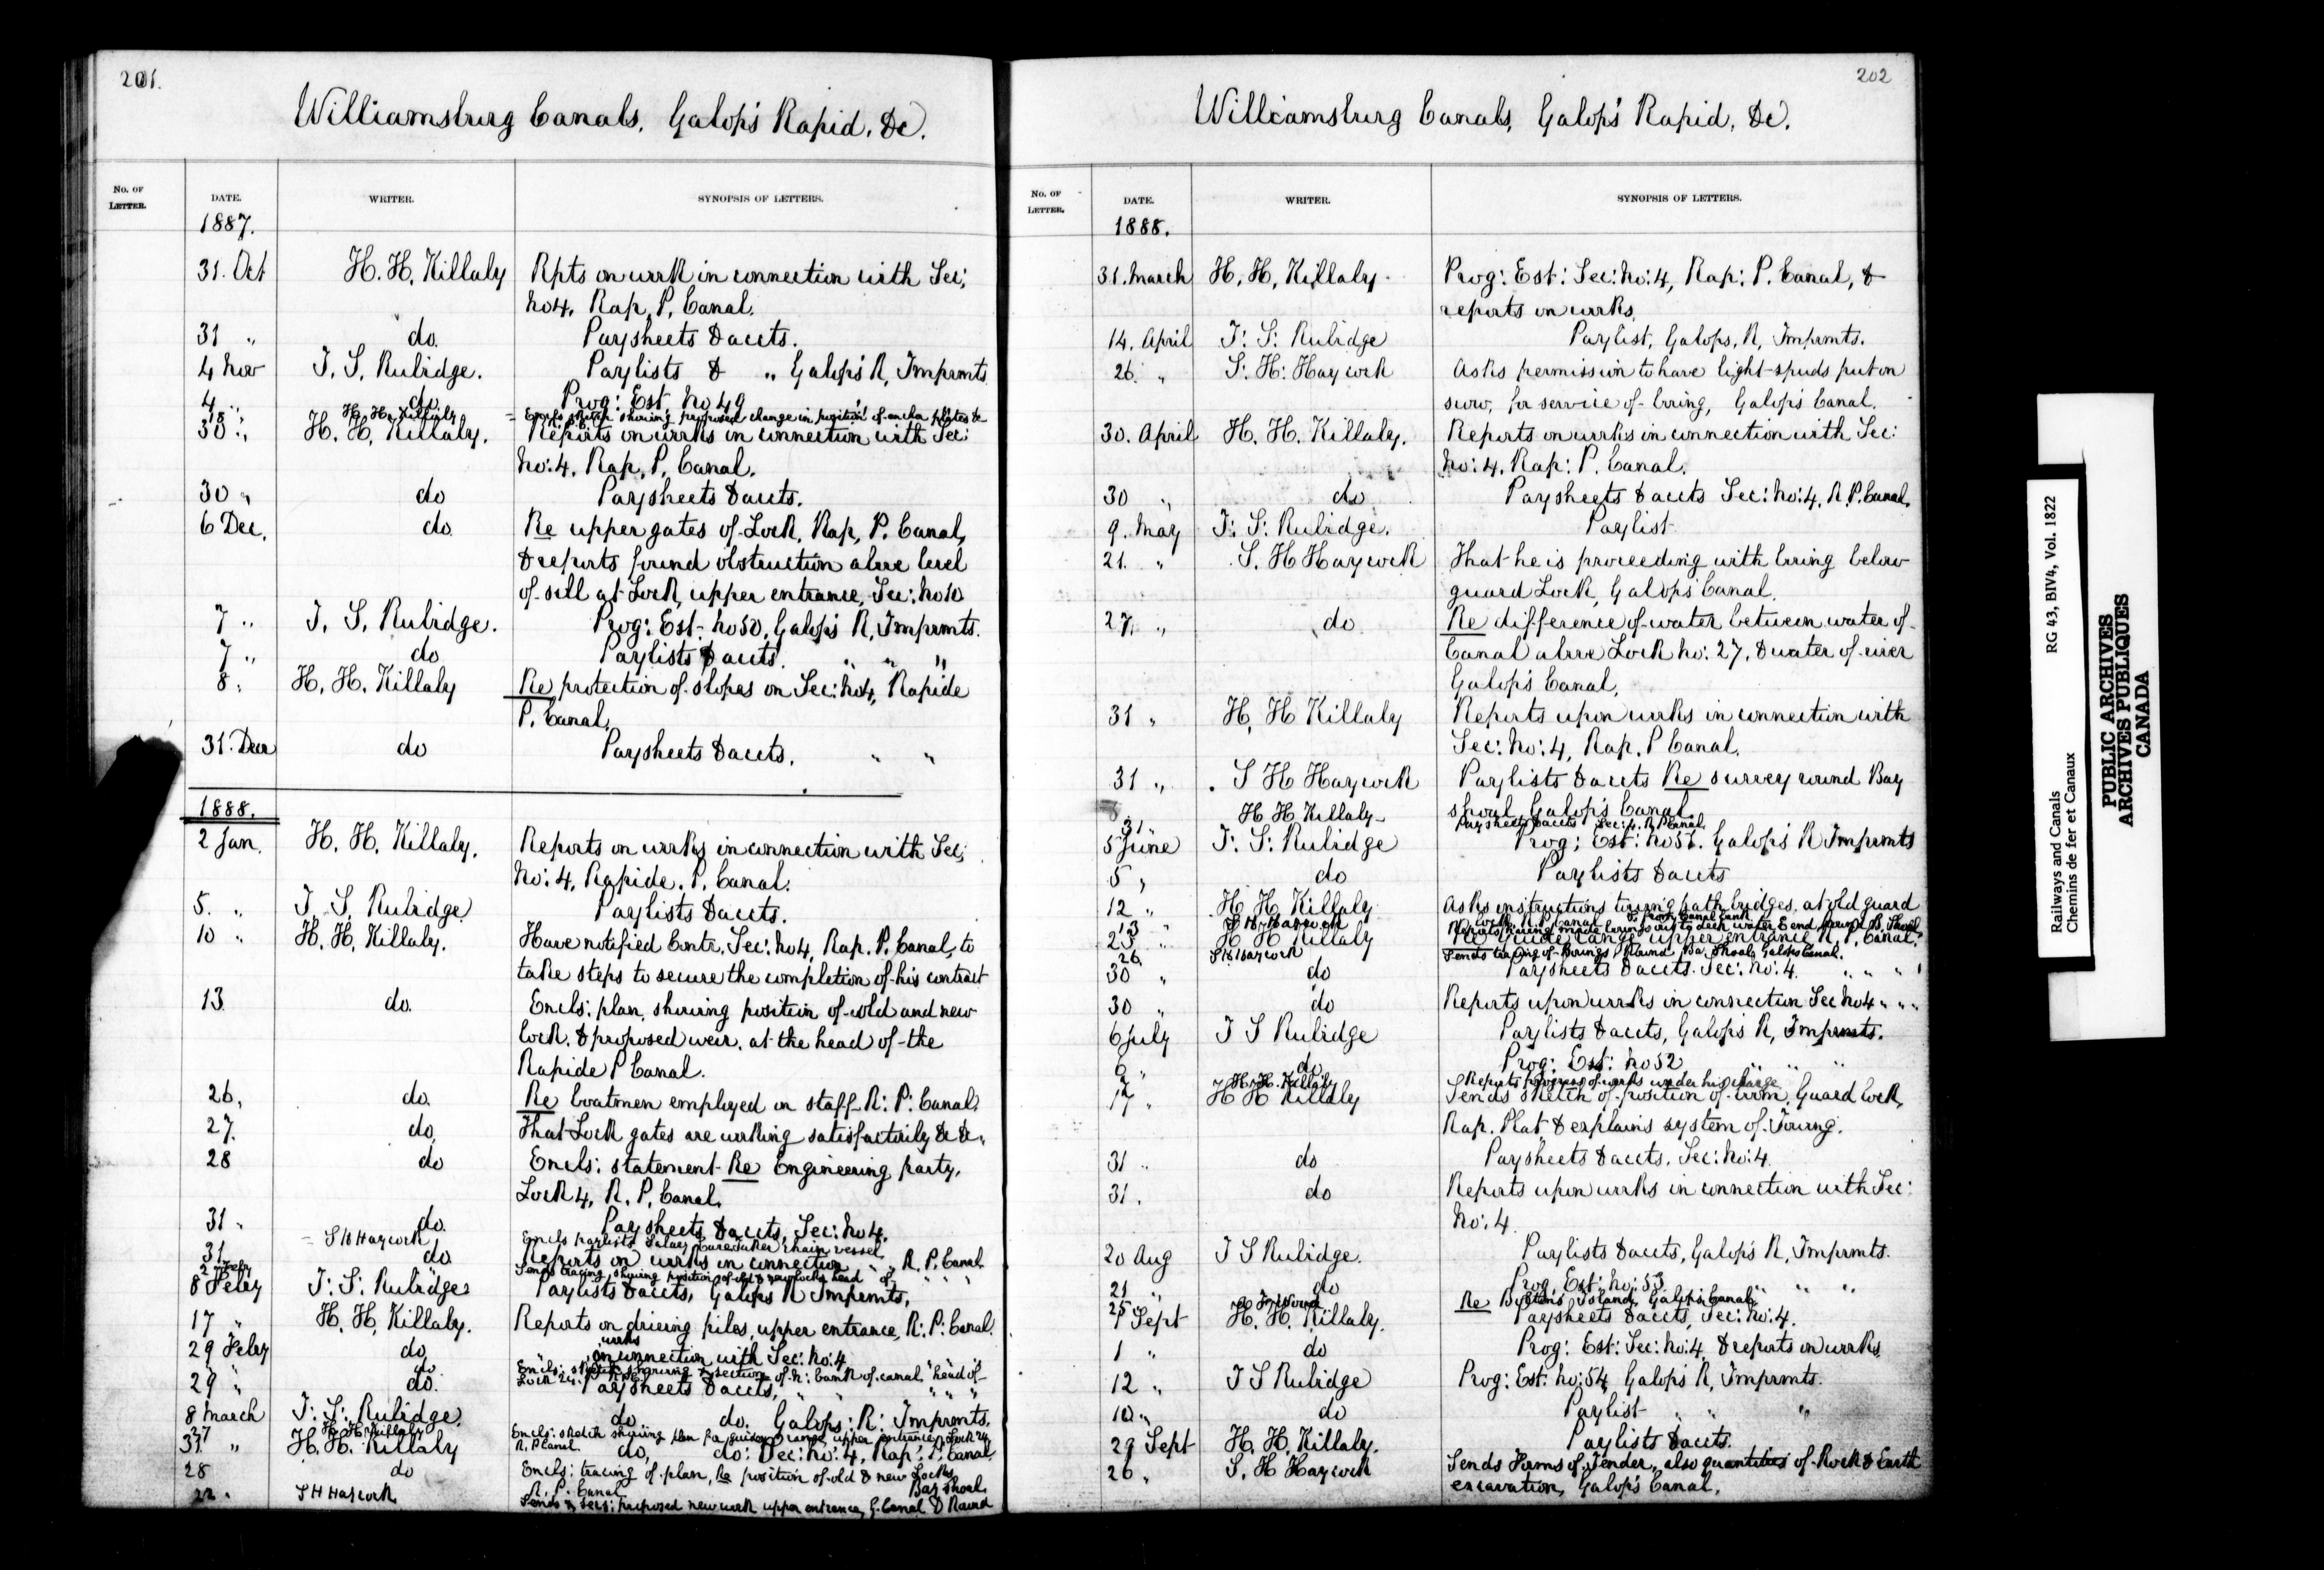 201.
Williamsburg Canals, Galop's Rapid, &c.
No. OF LETTER. DATE. WRITER. SYNOPSIS OF LETTERS.
1887.
31. Oct H. H. Killaly Rpts on work in connection with Sec:
No 4, Rap. P. Canal.
31 " do. Paysheets & accts.
4 Nov T. S. Rubidge. Paylists & " Galop's R, Imprmts
4 " do Prog: Est No 49
18 " H. H. Killaly = Encls sketch showing proposed change in position of anchor plates &c
30 " H. H. Killaly. Reports on works in connection with Sec:
No: 4, Rap. P. Canal.
30 " do Paysheets & accts.
6 Dec. do. Re upper gates of Lock, Rap, P. Canal,
& reports found obstruction above level
of sill at Lock, upper entrance, Sec: No 10
7 " T. S. Rubidge. Prog: Est- No 50, Galop's R, Imprmts.
7 " do Paylists & accts. " " "
8 " H. H. Killaly Re protection of slopes on Sec: No 4, Rapide
P. Canal,
31. Decr do Paysheets & accts. " "
1888.
2 Jan. H. H. Killaly. Reports on works in connection with Sec;
No: 4, Rapide. P. Canal.
5. " T. S. Rubidge Paylists & accts.
10 " H. H. Killaly. Have notified Contr. Sec: No 4, Rap. P. Canal, to
take steps to secure the completion of his contract
13. do. Encls: plan, showing position of old and new
lock. & proposed weir, at the head of the
Rapide P Canal.
26, do. Re boatmen employed on staff R: P: Canal.
27. do, That Lock gates are working satisfactorily &c &c.
28 do Encls: statement Re Engineering party,
Lock 4, R. P. Canal.
31 " do. Paysheets & accts, Sec: No 4.
= S H Haycock Encls paylists Salary Caretaker chain vessel
31 do Reports on works in connection " " R. P. Canal
2 Feby Sends tracing, showing position of old & new locks head of " " "
8 Feby T: S: Rubidge Paylists & accts, Galops R Imprmts,
17 " H. H, Killaly. Reports on driving piles, upper entrance, R: P: Canal.
29 Feby do, " works in connection with Sec: No: 4
do Encls: sketch showing X section of N: bank of canal, head of
Lock 24
29 " do. Paysheets & accts, " " "
8 March T: S: Rubidge. do do. Galops: R: Imprmts.
27 H. H. Killaly Encls: sketch showing plan for guide range upper entrance, Lock 24
R. P Canal
31. " H. H. Killaly do, do: Sec: No: 4, Rap: P. Canal
28 do Encls: tracing of plan, Re position of old & new Locks
R. P. Canal
22 " S H Haycock Sends X secs: proposed new work upper entrance, G. Canal & Round
Bay Shoal.
202
Williamsburg Canals, Galop's Rapid, &c.
No. OF LETTER. DATE. WRITER. SYNOPSIS OF LETTERS.
1888.
31. March H. H. Killaly Prog: Est: Sec: No: 4, Rap: P. Canal, &
reports on works.
14. April T: S: Rubidge Paylist, Galops, R, Imprmts.
26. " S: H: Haycock Asks permission to have light spuds put on
scow, for service of boring, Galop's Canal.
30. April H. H. Killaly. Reports on works in connection with Sec:
No: 4, Rap: P. Canal.
30 " do Paysheets & accts Sec: No: 4, R. P. Canal.
9. May T: S: Rubidge. Paylist
21. " S. H Haycock That he is proceeding with boring below
guard Lock, Galop's Canal.
27. " do Re difference of water between water of
Canal above Lock No: 27, & water of river
Galop's Canal.
31 " H. H Killaly Reports upon works in connection with
Sec: No: 4, Rap. P Canal.
31 " S H Haycock Paylists & accts Re survey round Bay
shoal Galop's Canal.
31 " H H Killaly Paysheets & accts Sec: 4, R P Canal
5 June T: S: Rubidge Prog: Est: No 51. Galop's R Imprmts
5 " do Paylists & accts
12 " H H Killaly Asks instructions towing path bridges, at old guard
Lock R P Canal
13 " S H Haycock Reports having made borings out to deep water E end Round B. Shoal
to from Canal bank
23 " H H Killaly Re Guide range upper entrance R. P. Canal.
26 S H Haycock Sends tracing of Borings Round Bay Shoal Galops Canal.
30 " do Paysheets & accts. Sec: No: 4. " " "
30 " do Reports upon works in connection Sec No 4 " " "
6 July T S Rubidge Paylists & accts, Galop's R, Imprmts.
6 " do Prog: Est: No 52 " " "
7 H. H. Killaly Reports progress of works under his charge
17 " H H Killaly Sends sketch of position of boom, Guard Lock,
Rap. Plat & explains system of Towing.
31 " do Paysheets & accts. Sec: No: 4.
31. do Reports upon works in connection with Sec:
No: 4.
20 Aug T S Rubidge. Paylists & accts, Galop's R, Imprmts.
21 " do Prog. Est: No: 53 " " "
25 " Re Island, Galop's Canal
1 Sept H. H. Killaly. Paysheets & accts, Sec: No: 4.
1 " do Prog: Est: Sec: No: 4, & reports on works.
12 " T S Rubidge Prog: Est: No: 54, Galop's R, Imprmts.
10 " do Paylist " " "
29 Sept H. H. Killaly. Paylists & accts.
26 " S. H Haycock Sends Forms of Tender, also quantities of Rock & Earth
excavation, Galop's Canal.
Railways and Canals
Chemins de fer et Canaux
RG 43, BIV4, Vol. 1822
PUBLIC ARCHIVES
ARCHIVES PUBLIQUES
CANADA